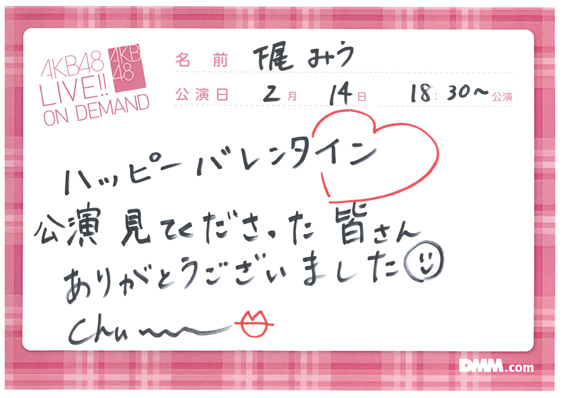 AKB48
LIVE!!
ON DEMAND
AKB
48
名前 下尾 みう
公演日 2月 14日 18:30〜公演
ハッピーバレンタイン
公演 見てくださった 皆さん
ありがとうございました
Chu
DMM.com